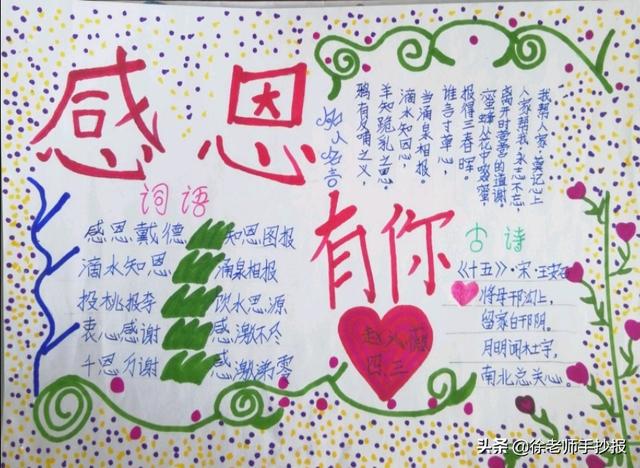 感恩
有你
我帮人家，莫记心上
人家帮我，永志不忘，
离开时营营的道谢。
蜜蜂丛花中啜蜜，
报得三春晖。
谁言寸草心，
当涌泉相报。
滴水知恩心，
羊知跪乳之恩。
鸦有反哺之义，
名人名言
词语
感恩戴德 知恩图报
滴水知恩 涌泉相报
投桃报李 饮水思源
衷心感谢 感激不尽
千恩万谢 感激涕零
古诗
《十五》·宋·王安石
将母邗沟上，
留家白邗阴。
月明闻杜宇，
南北总关心。
四三
头条@徐老师手抄报